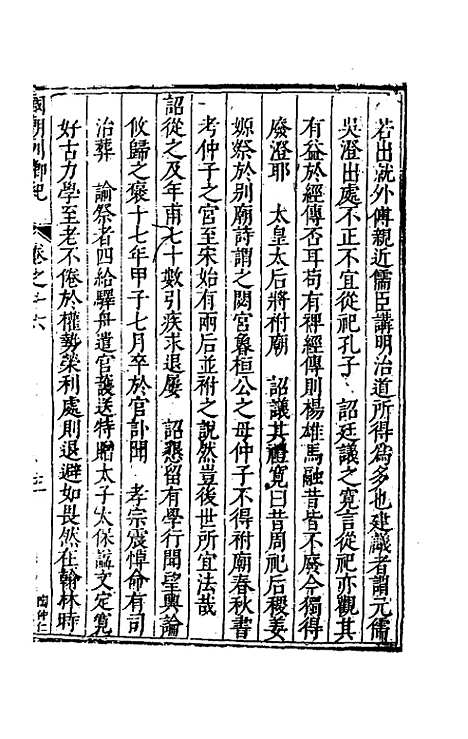 若出就外傅親近儒臣講明治道所得為多也建議者謂元儒
吳澄出處不正不宜從祀孔子 詔廷議之寬言從祀亦觀其
有益於經傳否耳苟有裨經傳則楊雄馬融昔皆不廢今獨得
廢澄耶 太皇太后將祔廟 詔議其禮寬曰昔周祀后稷姜
嫄祭於別廟詩謂之閟宮魯桓公之母仲子不得祔廟春秋書
考仲子之宮至宋始有兩后並祔之說然豈後世所宜法哉
詔從之及年甫七十數引疾求退屢 詔懇留有學行聞望輿論
攸歸之褒十七年甲子七月卒於官訃聞 孝宗震悼命有司
治葬 諭祭者四給驛舟遣官護送特贈太子太保諡文定寬
好古力學至老不倦於權勢榮利處則退避如畏然在翰林時
國朝列卿紀 卷之十六